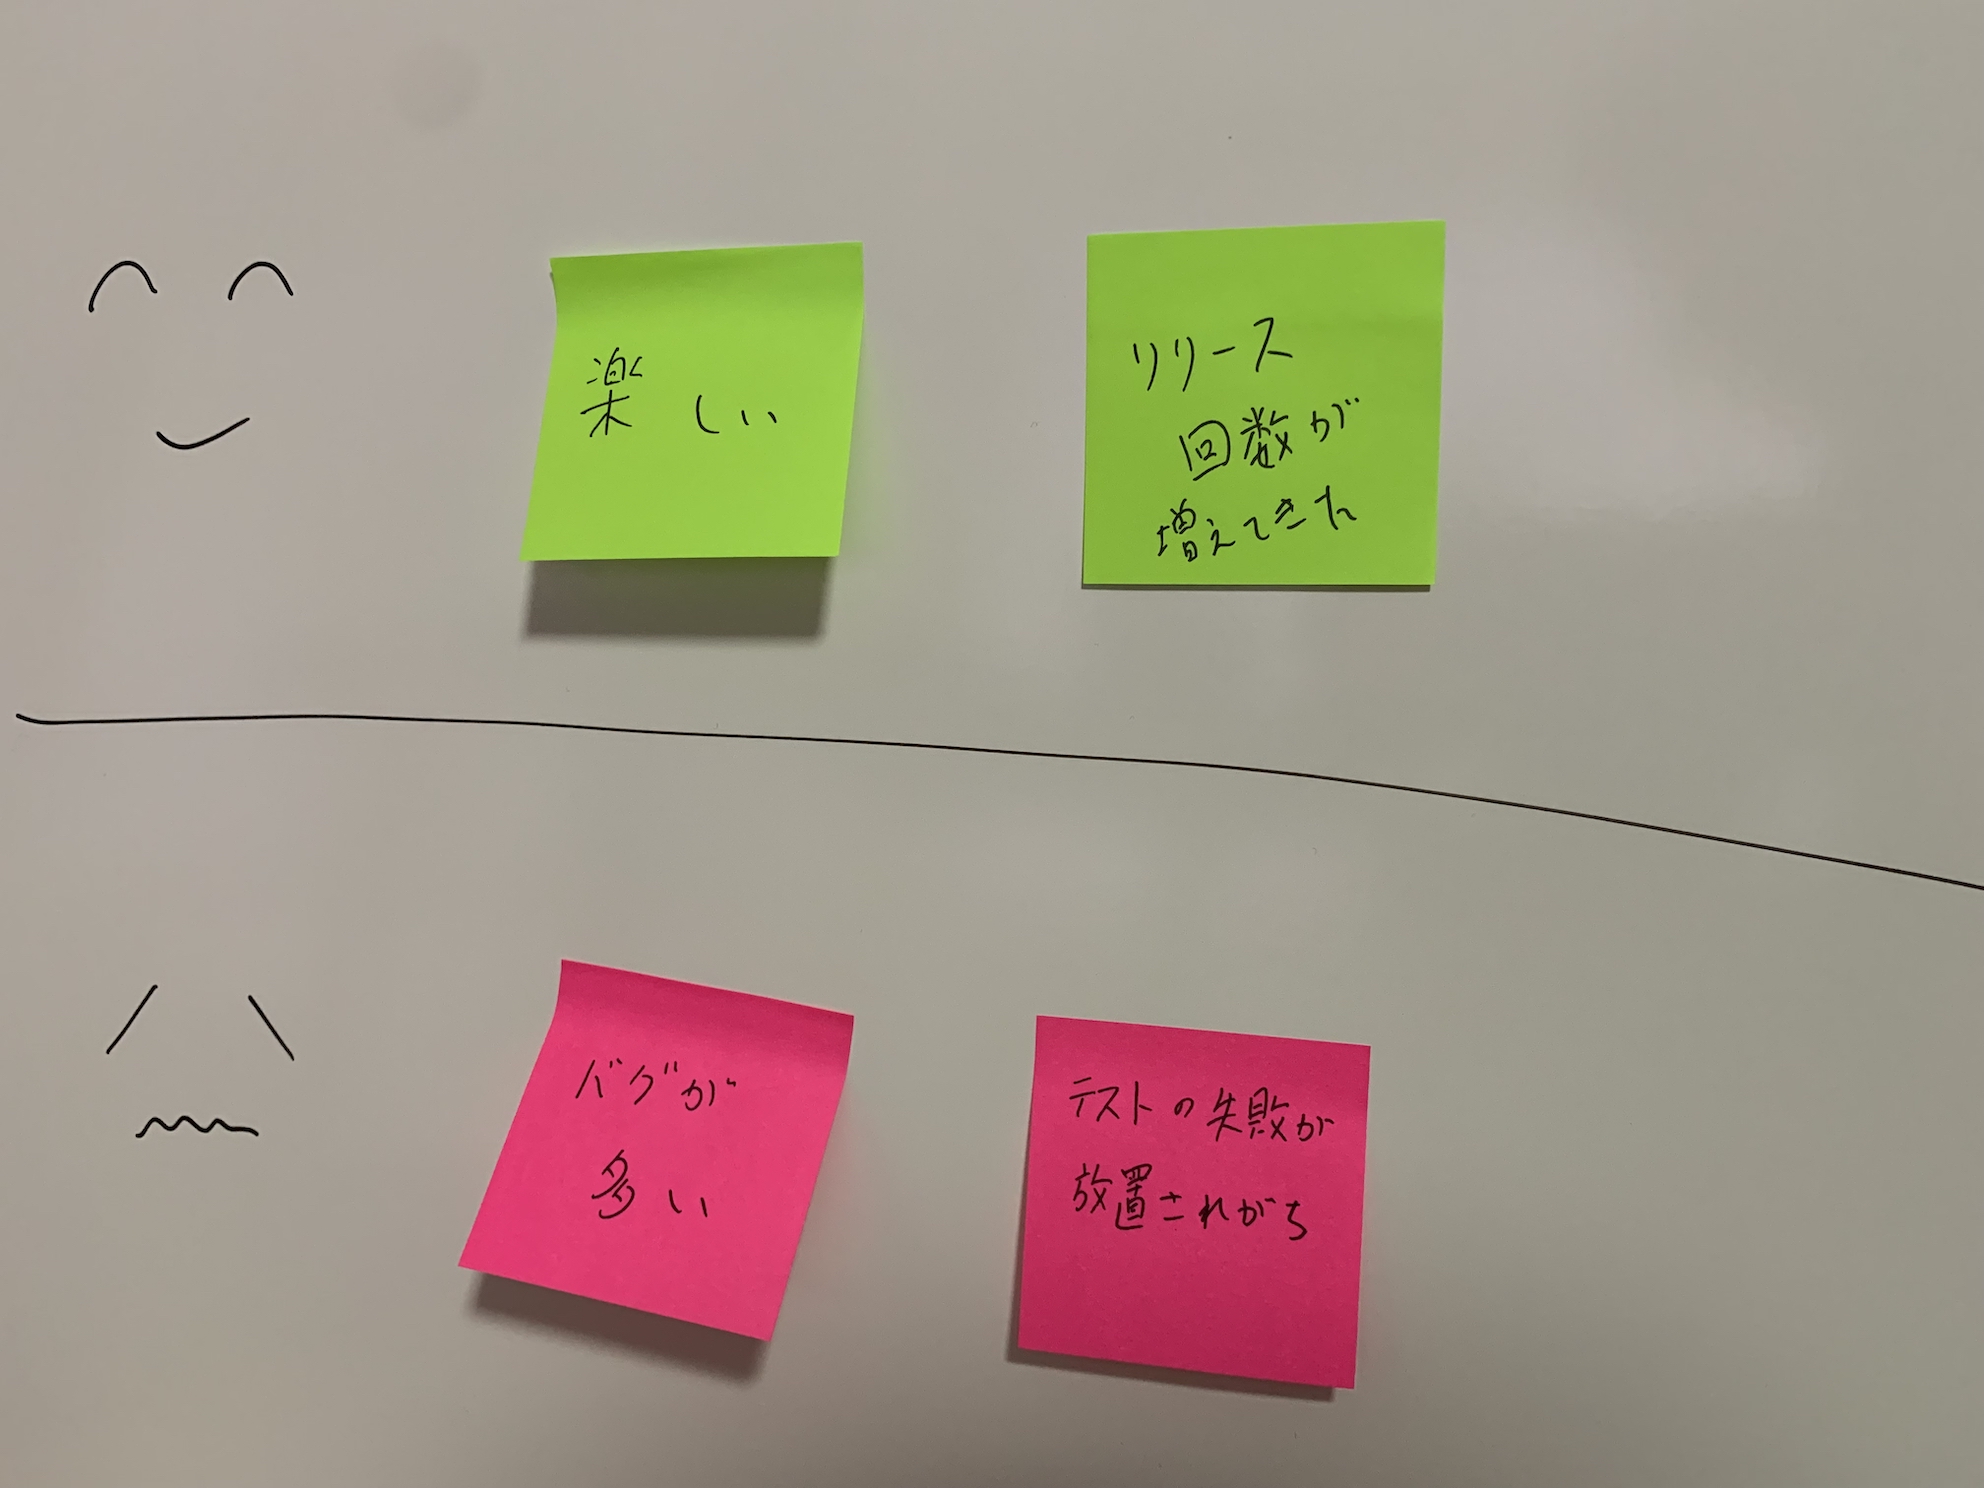 楽しい
リリース
回数が
増えてきた
バグが
多い
テストの失敗が
放置されがち